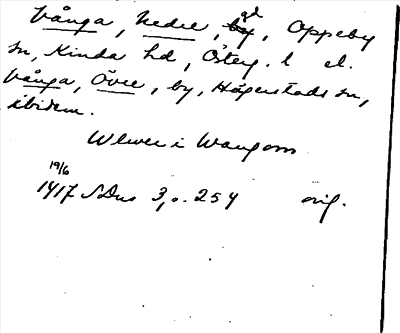 Vånga, Nedre, by gd, Oppeby
sn, Kinda hd, Österg. l el.
Vånga, Övre, by, Hägerstads sn,
ibidem.
Wlwer i Wangom
19/6
1417 SDns 3, s. 254 orig.